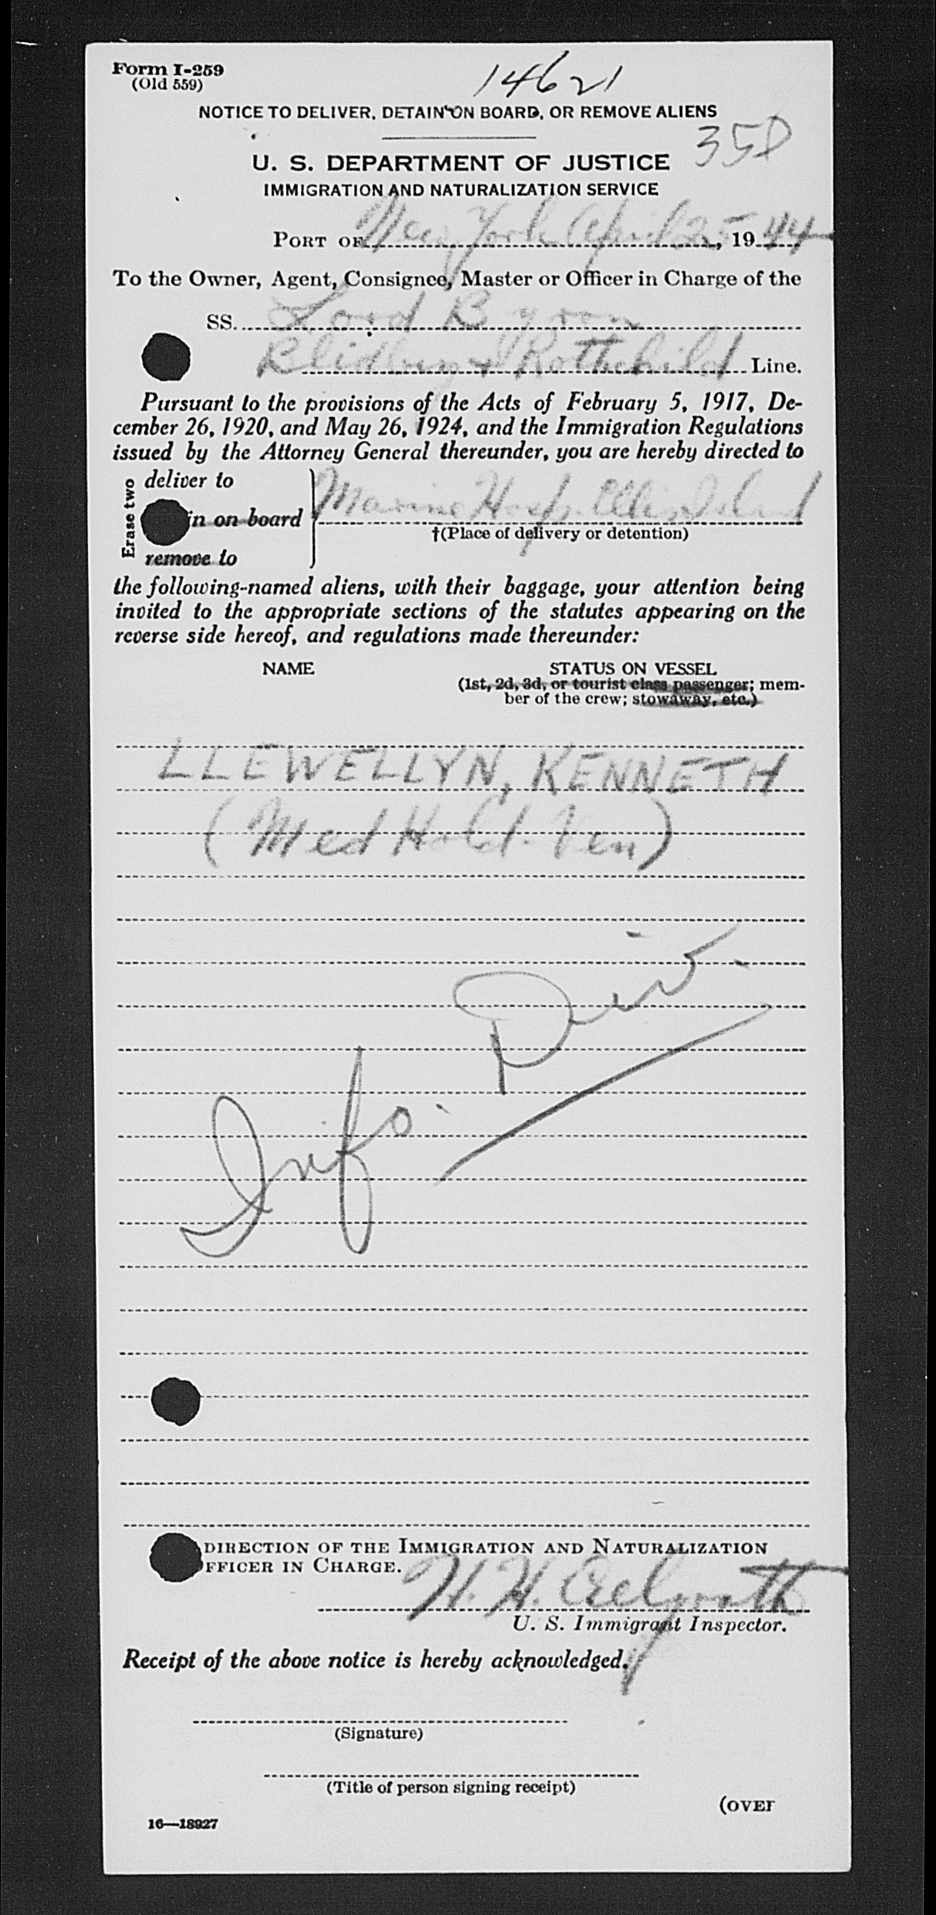 Form I-259
(Old 559)
14621
NOTICE TO DELIVER, DETAIN ON BOARD, OR REMOVE ALIENS
35D
U. S. DEPARTMENT OF JUSTICE
IMMIGRATION AND NATURALIZATION SERVICE
PORT OF New York April 25, 1944
To the Owner, Agent, Consignee, Master or Officer in Charge of the
SS. Lord Byron
& Rothchild Line.
Pursuant to the provisions of the Acts of February 5, 1917, De-
cember 26, 1920, and May 26, 1924, and the Immigration Regulations
issued by the Attorney General thereunder, you are hereby directed to
Erase two
deliver to
in on board
remove to
Marine Hosp. Ellis Island
†(Place of delivery or detention)
the following-named aliens, with their baggage, your attention being
invited to the appropriate sections of the statutes appearing on the
reverse side hereof, and regulations made thereunder:
NAME STATUS ON VESSEL
(1st, 2d, 3d, or tourist class passenger; mem-
ber of the crew; stowaway, etc.)
LLEWELLYN, KENNETH
(Med Hold. Ven)
Info. Div.
DIRECTION OF THE IMMIGRATION AND NATURALIZATION
FFICER IN CHARGE.
H. H.
U. S. Immigrant Inspector.
Receipt of the above notice is hereby acknowledged.
(Signature)
(Title of person signing receipt)
(OVER
16—18927